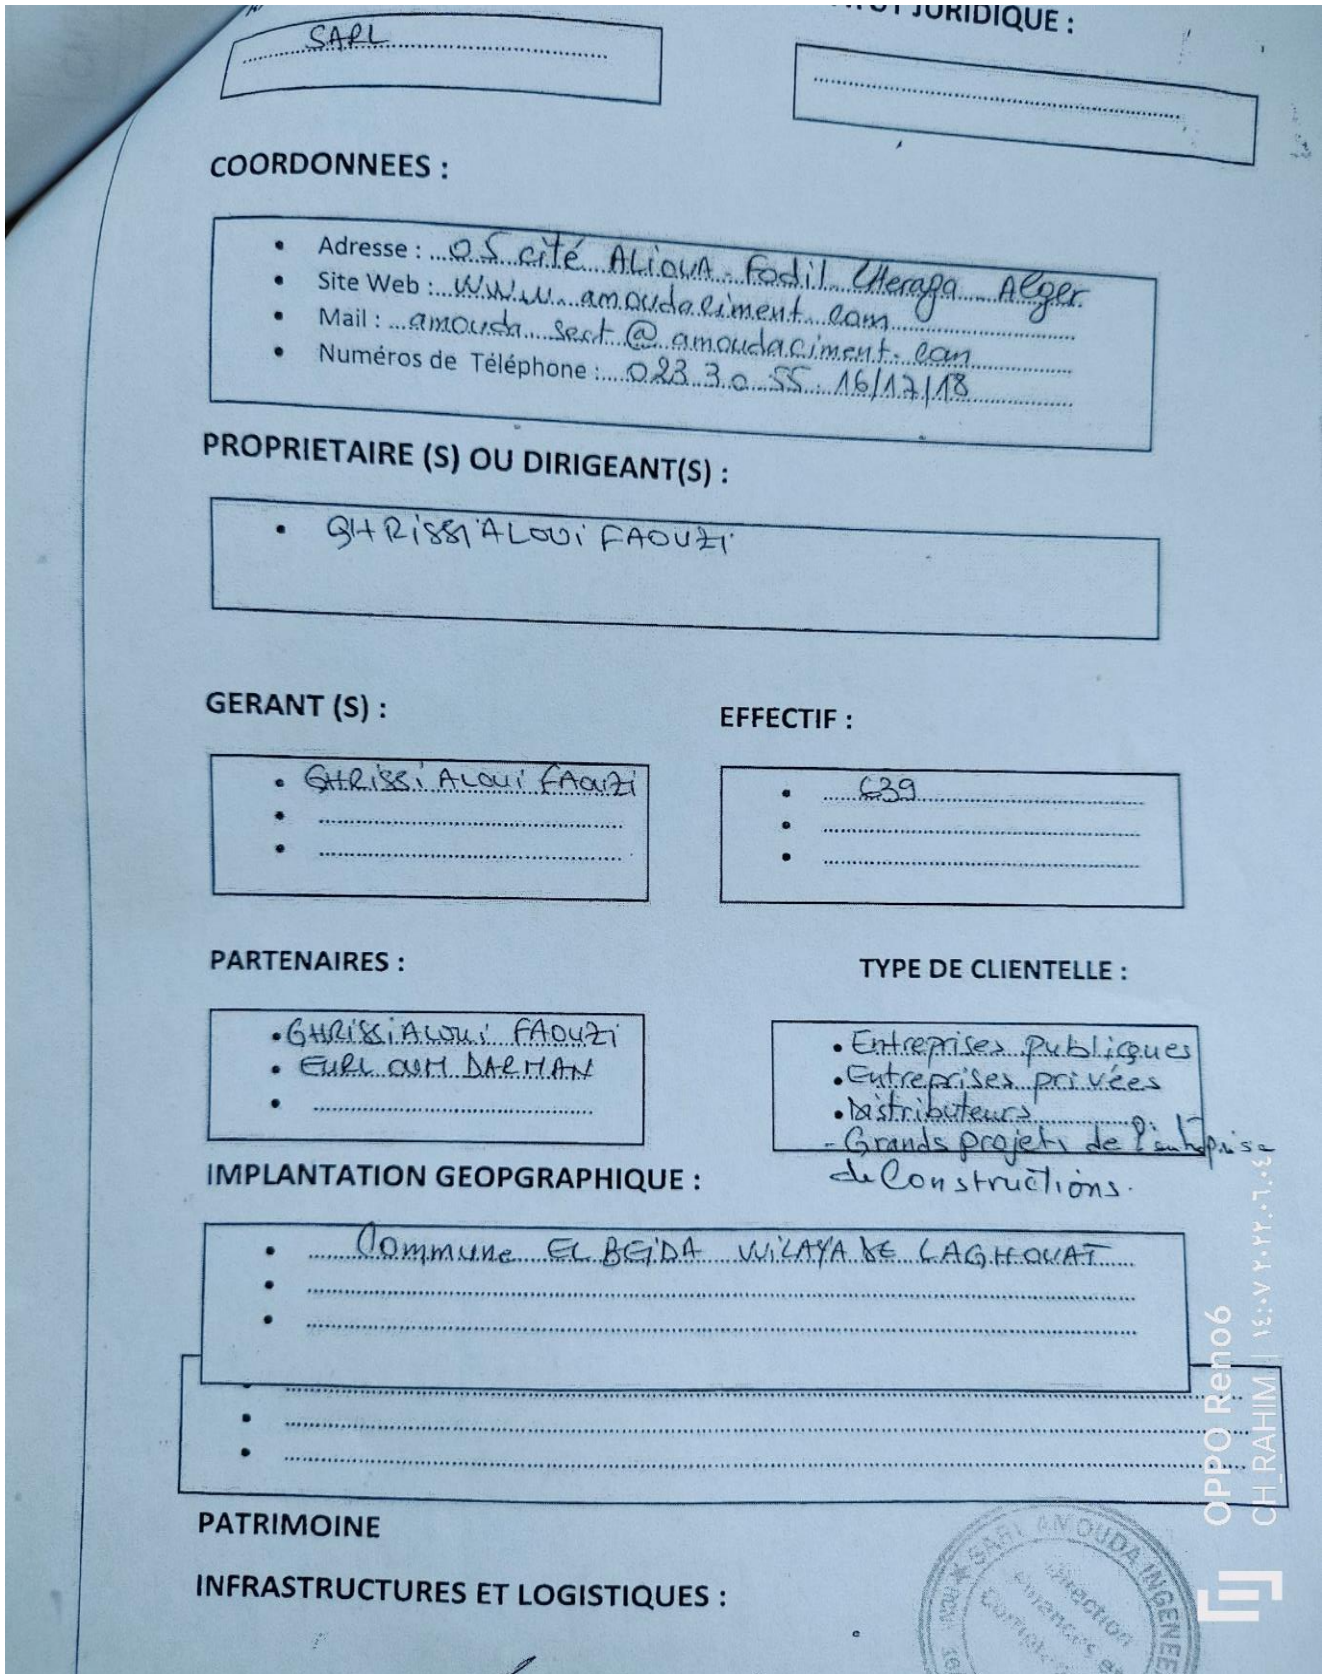 JURIDIQUE :
SARL
COORDONNEES :
• Adresse : 05 cité ALIOUA Fodil Cheraga Alger
• Site Web : www.amoudaciment.com
• Mail : amouda sect@amoudaciment.com
• Numéros de Téléphone : 023 30 55 16/17/18
PROPRIETAIRE (S) OU DIRIGEANT(S) :
• GHRiSSi ALOUi FAOUZi
GERANT (S) :
EFFECTIF :
• GHRISSi ALOUi FAOUZi
• 639
•
•
•
•
PARTENAIRES :
TYPE DE CLIENTELLE :
• GHRISSi ALOUi FAOUZi
• EURL OUM DARMAN
•
• Entreprises publicques
• Entreprises privées
• Distributeurs
- Grands projets de l'entreprise
de Constructions.
IMPLANTATION GEOPGRAPHIQUE :
• Commune EL BEiDA WiLAYA DE LAGHOUAT
•
•
•
•
•
PATRIMOINE
INFRASTRUCTURES ET LOGISTIQUES :
SARL AMOUDA INGENEE
Direction
Finances et
OPPO Reno6
CH_RAHIM | ٢٠٢٢.٠٦.٠٤ ١٤:٠٧